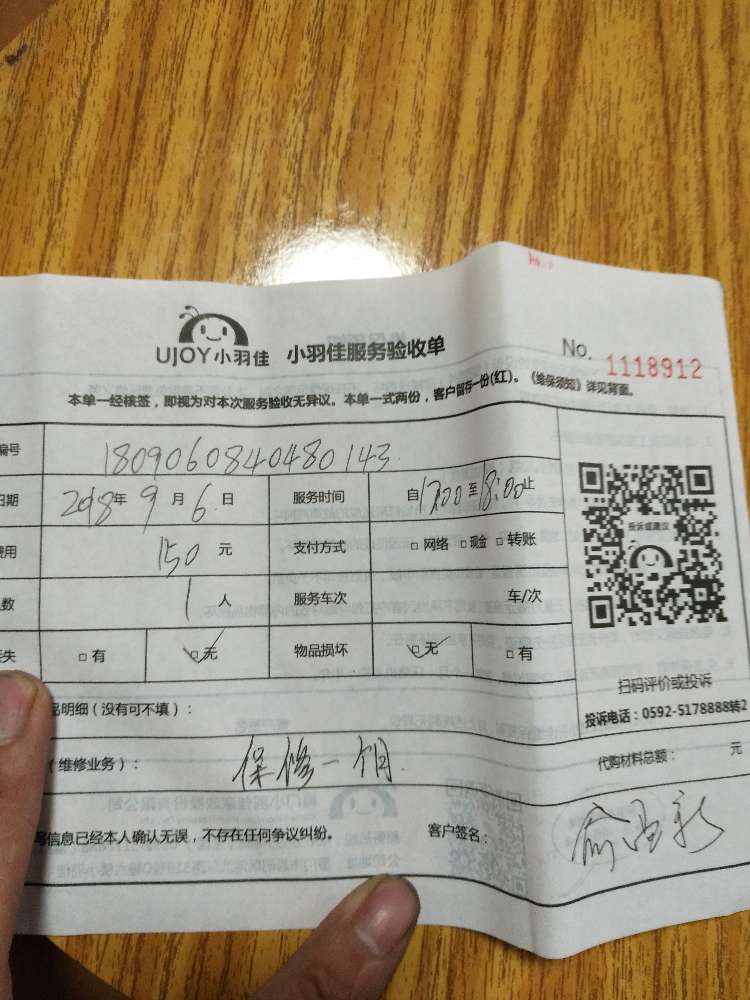 UJOY小羽佳 小羽佳服务验收单 No. 1118912
本单一经核签，即视为对本次服务验收无异议。本单一式两份，客户留存一份(红)。《维保须知》详见背面。
编号 1809060840480143
日期 2018年9月6日 服务时间 自17:00至18:00止
费用 150元 支付方式 □网络 □现金 □转账
数 1人 服务车次 车/次
失 □有 □无 物品损坏 □无 □有
投诉或建议
扫码评价或投诉
投诉电话：0592-5178888转2
品明细（没有可不填）：
（维修业务）： 保修一个月 代购材料总额： 元
写信息已经本人确认无误，不存在任何争议纠纷。 客户签名：